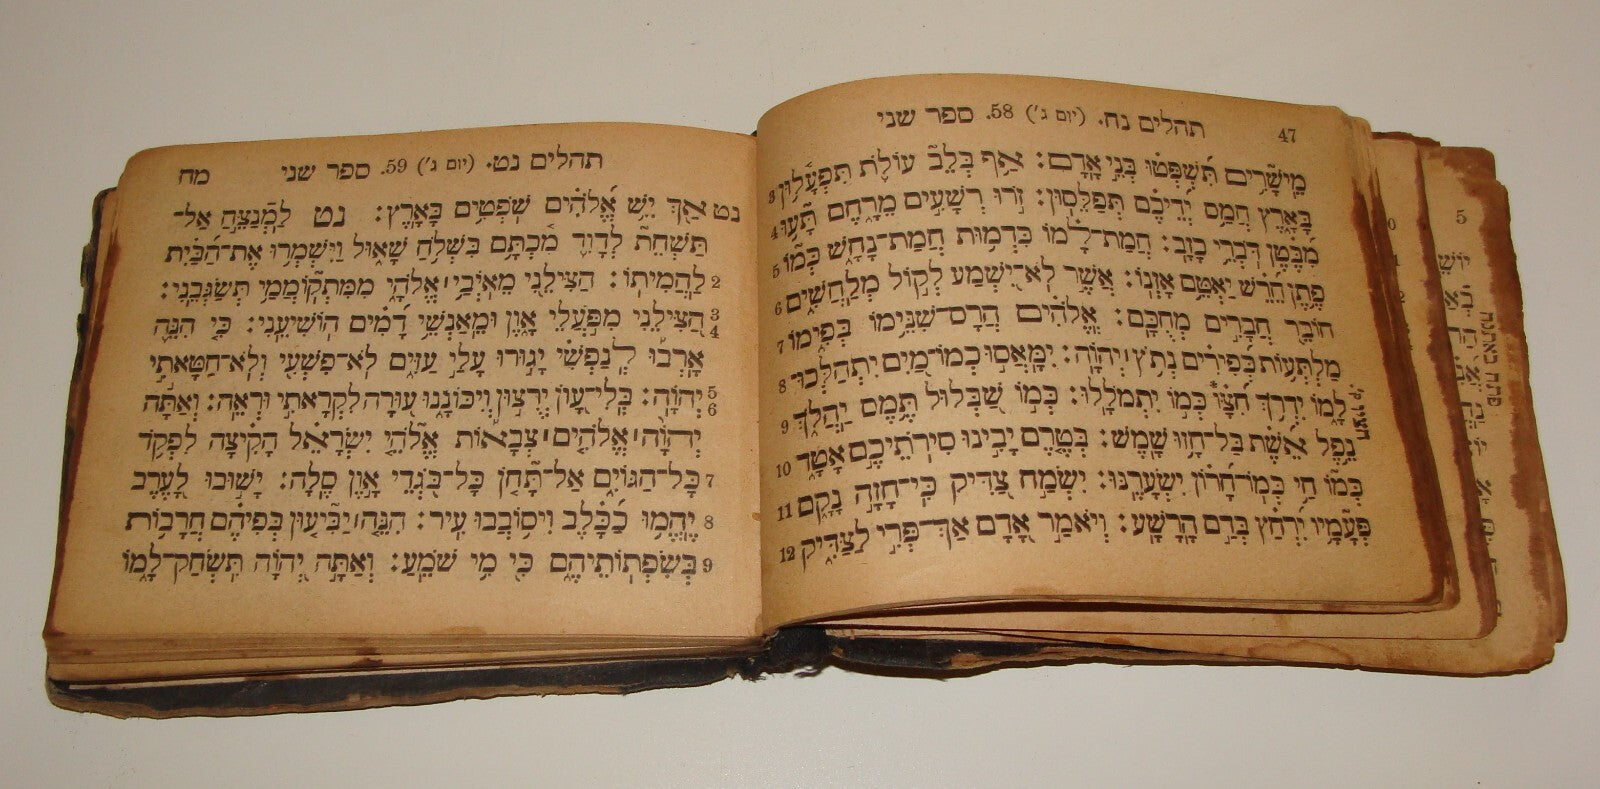 47 תהלים נח. (יום ג') 58. ספר שני
מֵישָׁרִים תִּשְׁפְּטוּ בְּנֵי אָדָם׃ אַף בְּלֵב עוֹלֹת תִּפְעָלוּן 3
בָּאָרֶץ חֲמַס יְדֵיכֶם תְּפַלֵּסוּן׃ זֹרוּ רְשָׁעִים מֵרָחֶם תָּעוּ 4
מִבֶּטֶן דֹּבְרֵי כָזָב׃ חֲמַת־לָמוֹ כִּדְמוּת חֲמַת־נָחָשׁ כְּמוֹ 5
פֶתֶן חֵרֵשׁ יַאְטֵם אָזְנוֹ׃ אֲשֶׁר לֹא־יִשְׁמַע לְקוֹל מְלַחֲשִׁים 6
חוֹבֵר חֲבָרִים מְחֻכָּם׃ אֱלֹהִים הֲרָס־שִׁנֵּימוֹ בְּפִימוֹ 7
מַלְתְּעוֹת כְּפִירִים נְתֹץ ׀ יְהוָֹה׃ יִמָּאֲסוּ כְמוֹ־מַיִם יִתְהַלְּכוּ־ 8
לָמוֹ יִדְרֹךְ חִצָּו֯ כְּמוֹ יִתְמֹלָלוּ׃ כְּמוֹ שַׁבְּלוּל תֶּמֶס יַהֲלֹךְ 9
חציו ק'
נֵפֶל אֵשֶׁת בַּל־חָזוּ שָׁמֶשׁ׃ בְּטֶרֶם יָבִינוּ סִּירֹתֵיכֶם אָטָד 10
כְּמוֹ חַי כְּמוֹ־חָרוֹן יִשְׂעָרֶנּוּ׃ יִשְׂמַח צַדִּיק כִּי־חָזָה נָקָם 11
פְּעָמָיו יִרְחַץ בְּדַם הָרָשָׁע׃ וְיֹאמַר אָדָם אַךְ־פְּרִי לַצַּדִּיק 12
תהלים נט. (יום ג') 59. ספר שני מח
נט אַךְ יֵשׁ אֱלֹהִים שֹׁפְטִים בָּאָרֶץ׃ נט לַמְנַצֵּחַ אַל־
תַּשְׁחֵת לְדָוִד מִכְתָּם בִּשְׁלֹחַ שָׁאוּל וַיִּשְׁמְרוּ אֶת־הַבַּיִת
2 לַהֲמִיתוֹ׃ הַצִּילֵנִי מֵאֹיְבַי ׀ אֱלֹהָי מִמִּתְקוֹמְמַי תְּשַׂגְּבֵנִי׃
3 4 הַצִּילֵנִי מִפֹּעֲלֵי אָוֶן וּמֵאַנְשֵׁי דָמִים הוֹשִׁיעֵנִי׃ כִּי הִנֵּה
אָרְבוּ לְנַפְשִׁי יָגוּרוּ עָלַי עַזִּים לֹא־פִשְׁעִי וְלֹא־חַטָּאתִי
5 6 יְהוָֹה׃ בְּלִי־עָוֹן יְרֻצוּן וְיִכּוֹנָנוּ עוּרָה לִקְרָאתִי וּרְאֵה׃ וְאַתָּה
יְהוָֹה ׀ אֱלֹהִים ׀ צְבָאוֹת אֱלֹהֵי יִשְׂרָאֵל הָקִיצָה לִפְקֹד
7 כָּל־הַגּוֹיִם אַל־תָּחֹן כָּל־בֹּגְדֵי אָוֶן סֶלָה׃ יָשׁוּבוּ לָעֶרֶב
8 יֶהֱמוּ כַכָּלֶב וִיסוֹבְבוּ עִיר׃ הִנֵּה ׀ יַבִּיעוּן בְּפִיהֶם חֲרָבוֹת
9 בְּשִׂפְתוֹתֵיהֶם כִּי מִי שֹׁמֵעַ׃ וְאַתָּה יְהוָֹה תִּשְׂחַק־לָמוֹ
5